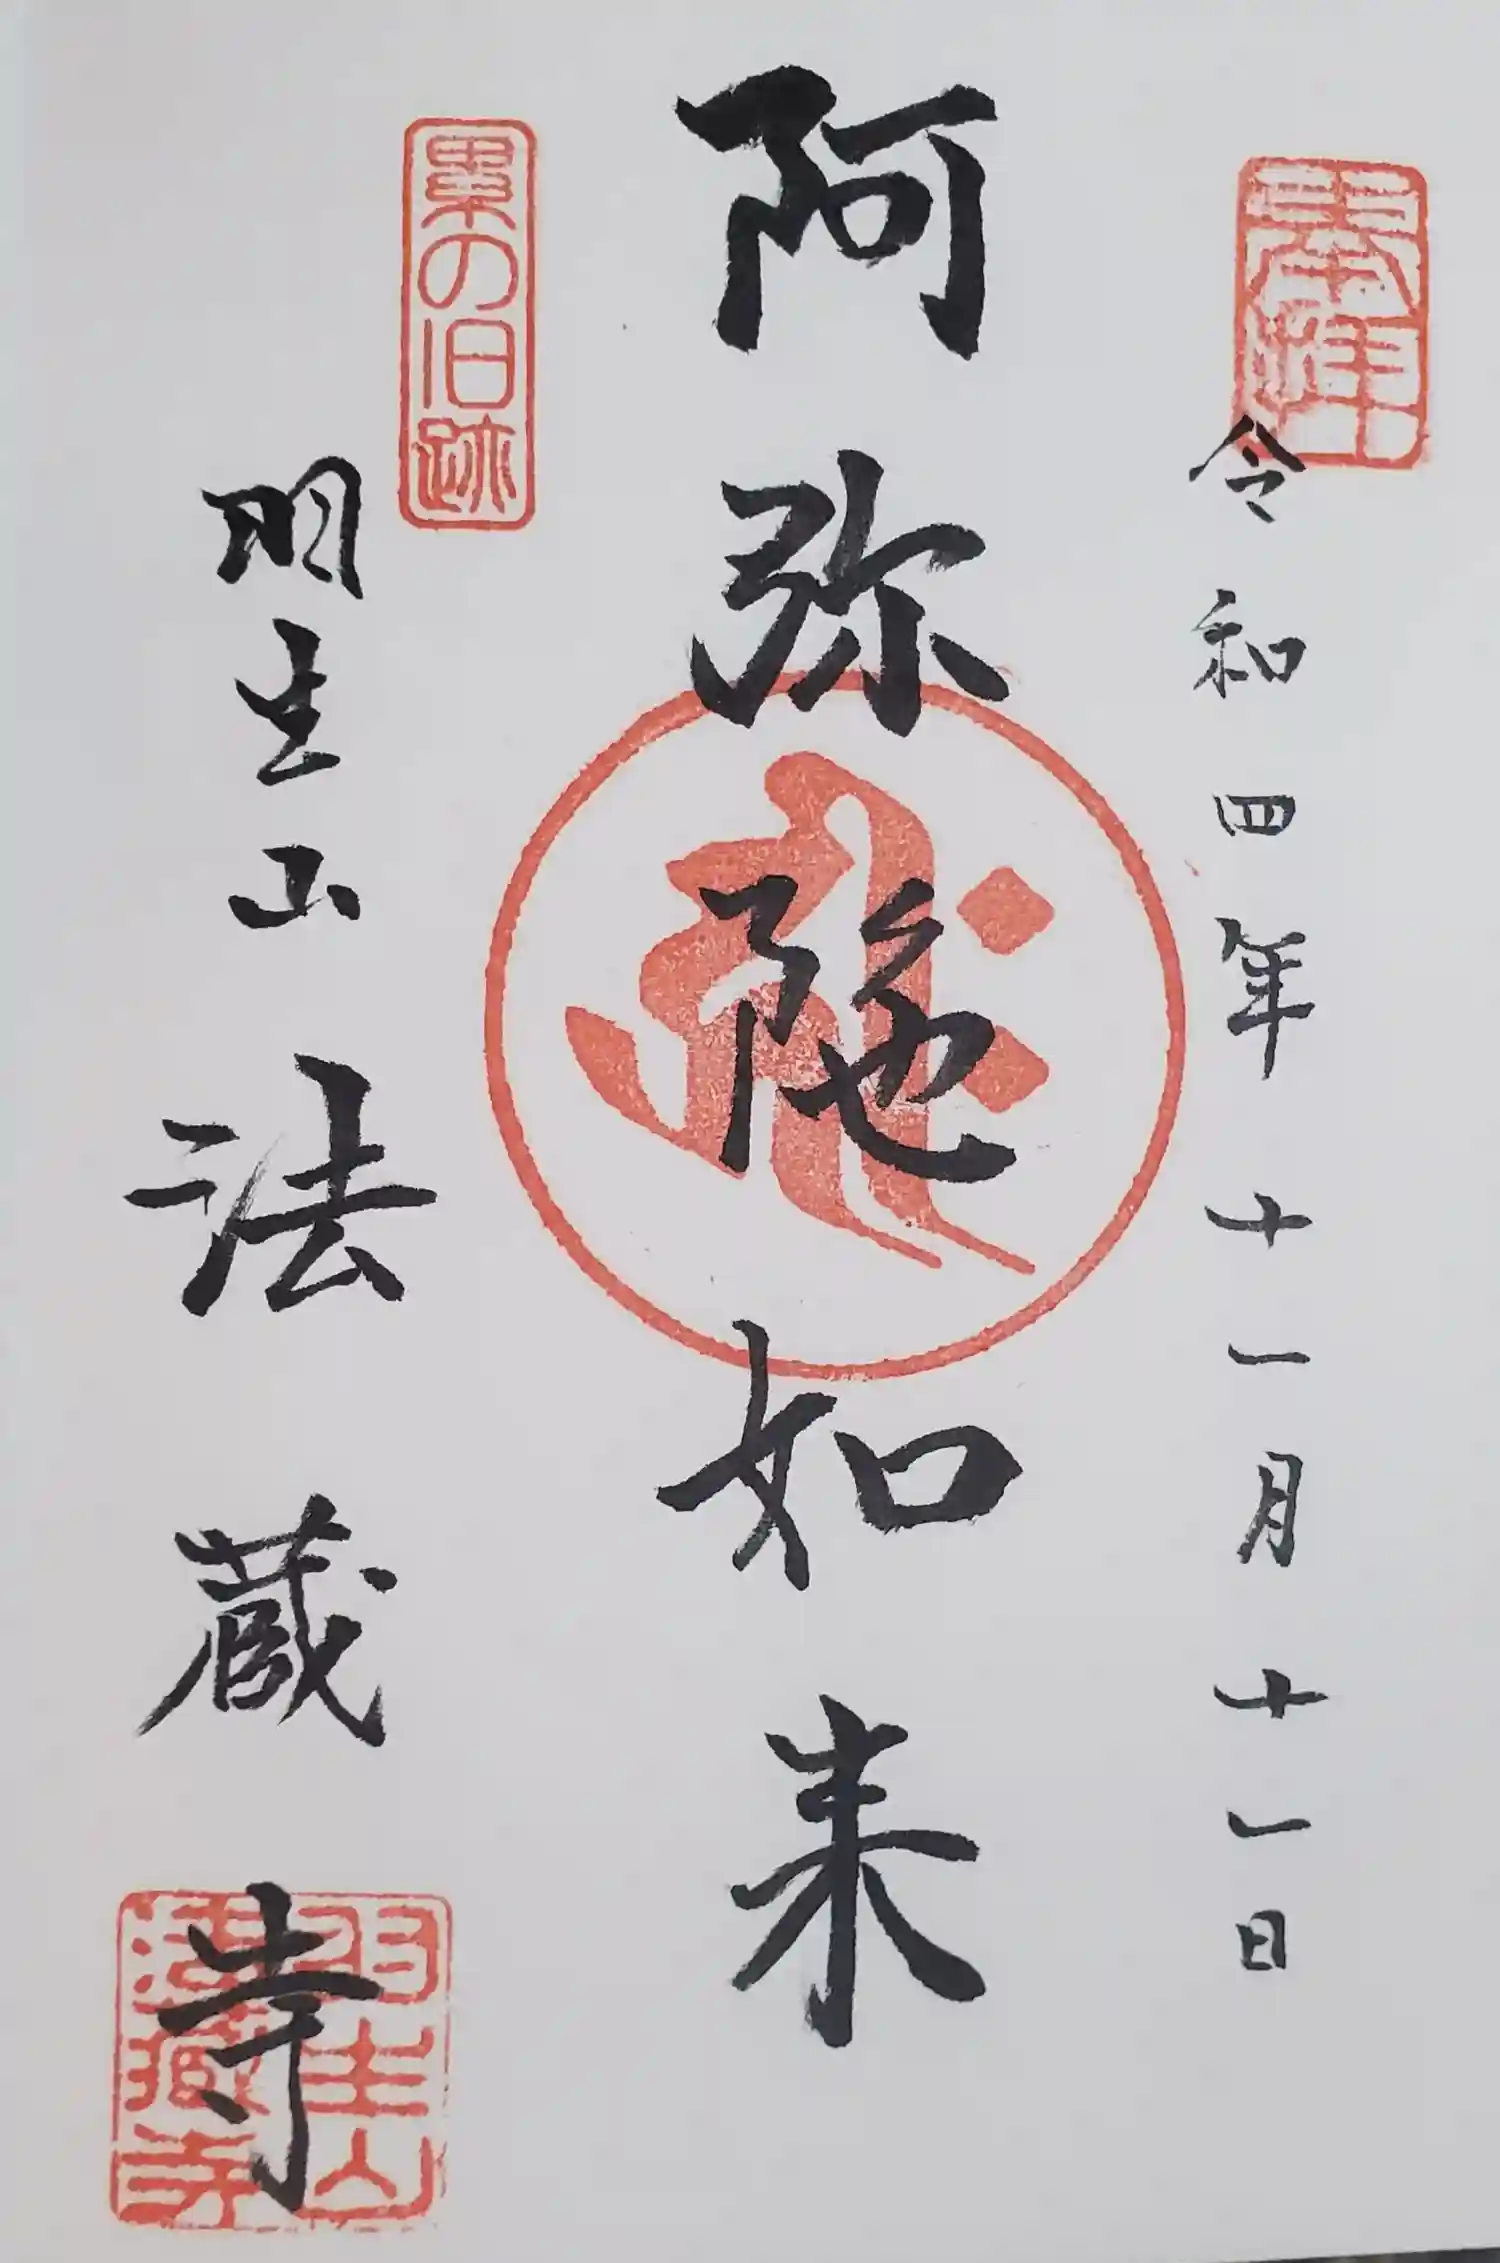 令和四年十一月十一日
阿弥陀如来
累の旧跡
羽生山 法蔵寺
羽生山
法蔵寺